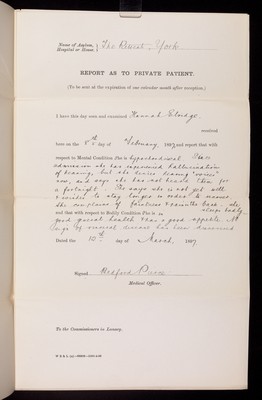 Name of Asylum, Hospital or House. } The Retreat, York
REPORT AS TO PRIVATE PATIENT.
(To be sent at the expiration of one calendar month after reception.)
I have this day seen and examined Hannah
received
here on the 8th day of February, 1897 and report that with
respect to Mental Condition she is hypochondriacal. Since
admission she has experienced hallucinations
of hearing, but she denies hearing "voices"
now, and says she has not heard them for
a fortnight. She says she is not yet well
& wishes to stay longer in order to
the of & the back. She
and that with respect to Bodily Condition she is in sleeps badly.
good general health & has a good appetite. No
signs of visceral disease has been discovered
Dated the 10th day of March, 1897
Signed Bedford Pierce
Medical Officer.
To the Commissioners in Lunacy.